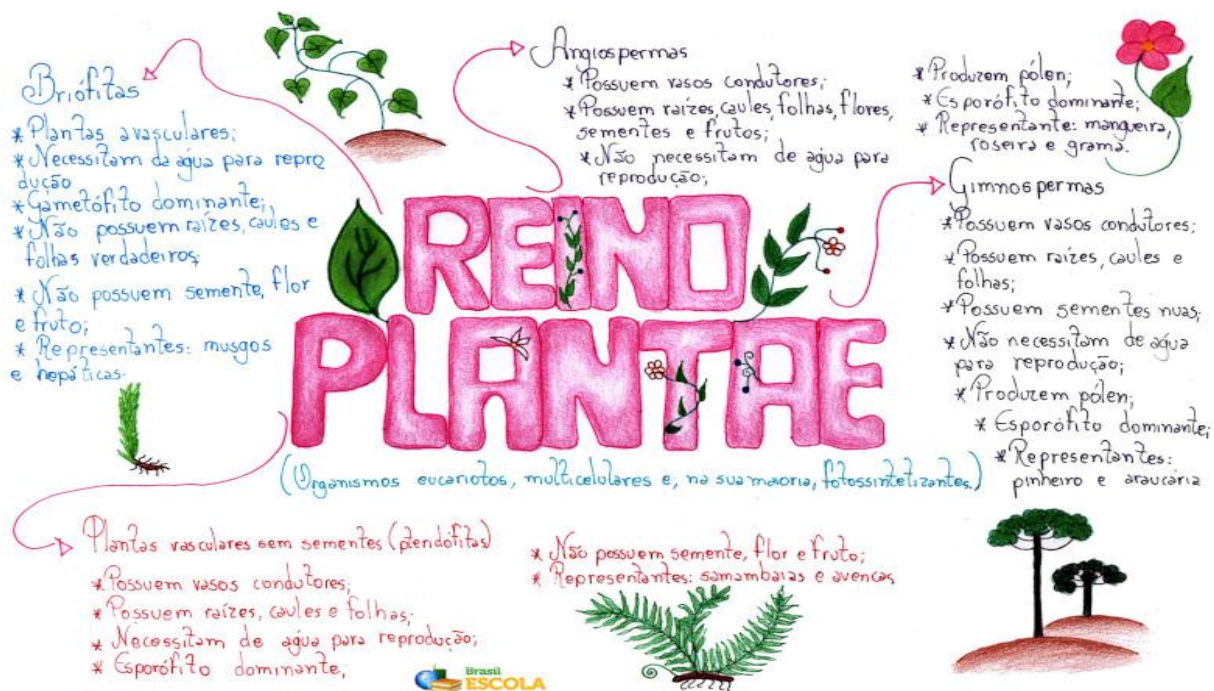 REINO
PLANTAE
(Organismos eucariotos, multicelulares e, na sua maioria, fotossintetizantes.)
Briófitas
* Plantas avasculares;
* Necessitam da água para repro
dução
* Gametófito dominante;
* Não possuem raízes, caules e
folhas verdadeiros;
* Não possuem semente, flor
e fruto;
* Representantes: musgos
e hepáticas.
Angiospermas
* Possuem vasos condutores;
* Possuem raízes, caules, folhas, flores,
sementes e frutos;
* Não necessitam de água para
reprodução;
* Produzem pólen;
* Esporófito dominante;
* Representante: mangueira,
roseira e grama.
Gimnospermas
* Possuem vasos condutores;
* Possuem raízes, caules e
folhas;
* Possuem sementes nuas;
* Não necessitam de água
para reprodução;
* Produzem pólen;
* Esporófito dominante;
* Representantes:
pinheiro e araucária
Plantas vasculares sem sementes (pteridófitas)
* Possuem vasos condutores;
* Possuem raízes, caules e folhas;
* Necessitam de água para reprodução;
* Esporófito dominante;
* Não possuem semente, flor e fruto;
* Representantes: samambaias e avencas
Brasil
ESCOLA